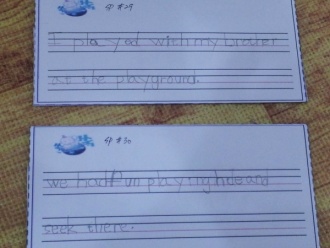 4P #29
I played with my broter
on the playground.
4P #30
we had fun playing hide and
seek there.